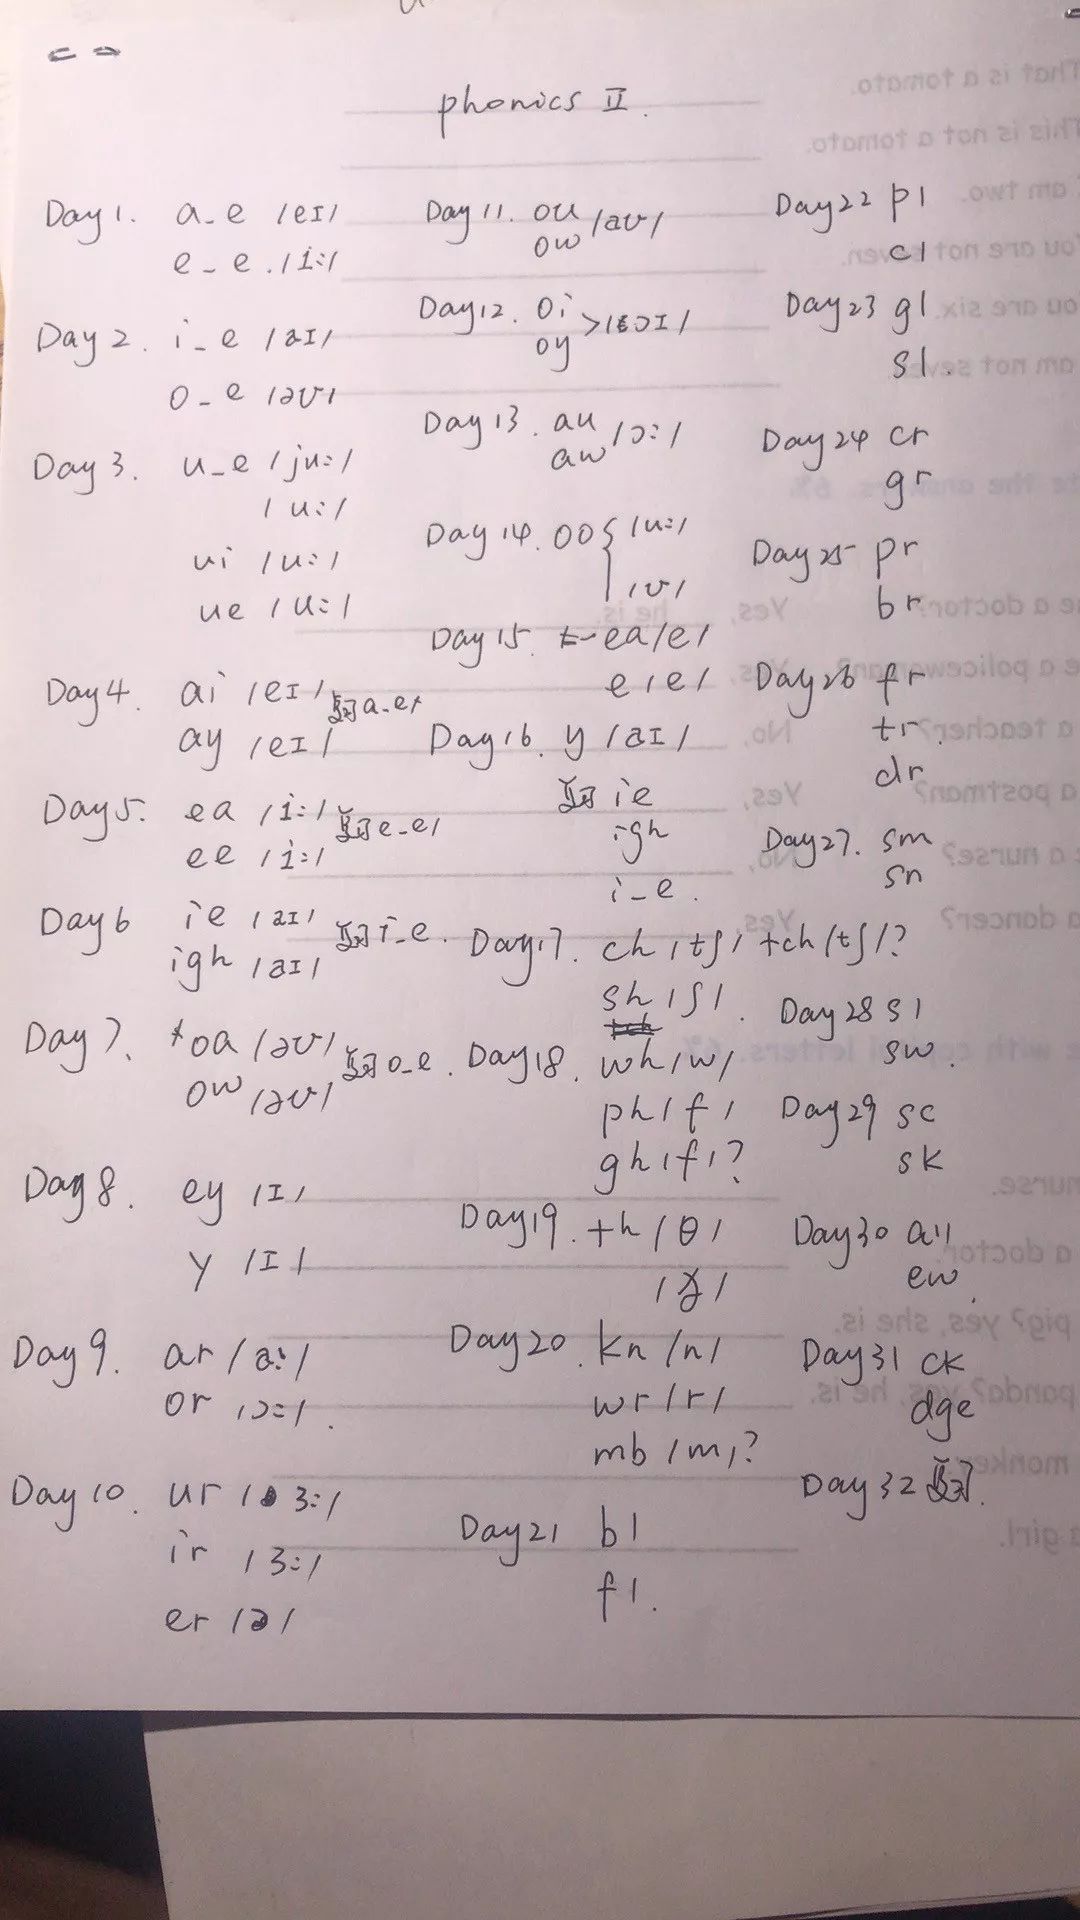 phonics II.
Day 1. a_e /eɪ/
e_e. /i:/
Day 2. i_e /aɪ/
o_e /əʊ/
Day 3. u_e /ju:/
/u:/
ui /u:/
ue /u:/
Day 4. ai /eɪ/ 复习 a_e
ay /eɪ/
Day 5. ea /i:/ 复习 e_e
ee /i:/
Day 6 ie /aɪ/ 复习 i_e.
igh /aɪ/
Day 7. oa /əʊ/ 复习 o_e.
ow /əʊ/
Day 8. ey /ɪ/
y /ɪ/
Day 9. ar /a:/
or /ɔ:/.
Day 10. ur /ɜ:/
ir /ɜ:/
er /ə/
Day 11. ou /aʊ/
ow
Day 12. oi >/ɔɪ/
oy
Day 13. au /ɔ:/
aw
Day 14. oo { /u:/
/ʊ/
Day 15. ea /e/
e /e/
Day 16. y /aɪ/
复习 ie
igh
i_e.
Day 17. ch /tʃ/ tch /tʃ/?
sh /ʃ/.
Day 18. wh /w/
ph /f/
gh /f/?
Day 19. th /θ/
/ð/
Day 20. kn /n/
wr /r/
mb /m/?
Day 21 bl
fl.
Day 22 pl
cl
Day 23 gl
sl.
Day 24 cr
gr
Day 25 pr
br
Day 26 fr
tr
dr
Day 27. sm
sn
Day 28 sl
sw.
Day 29 sc
sk
Day 30 all
ew
Day 31 ck
dge
Day 32 复习.
That is a tomato.
This is not a tomato.